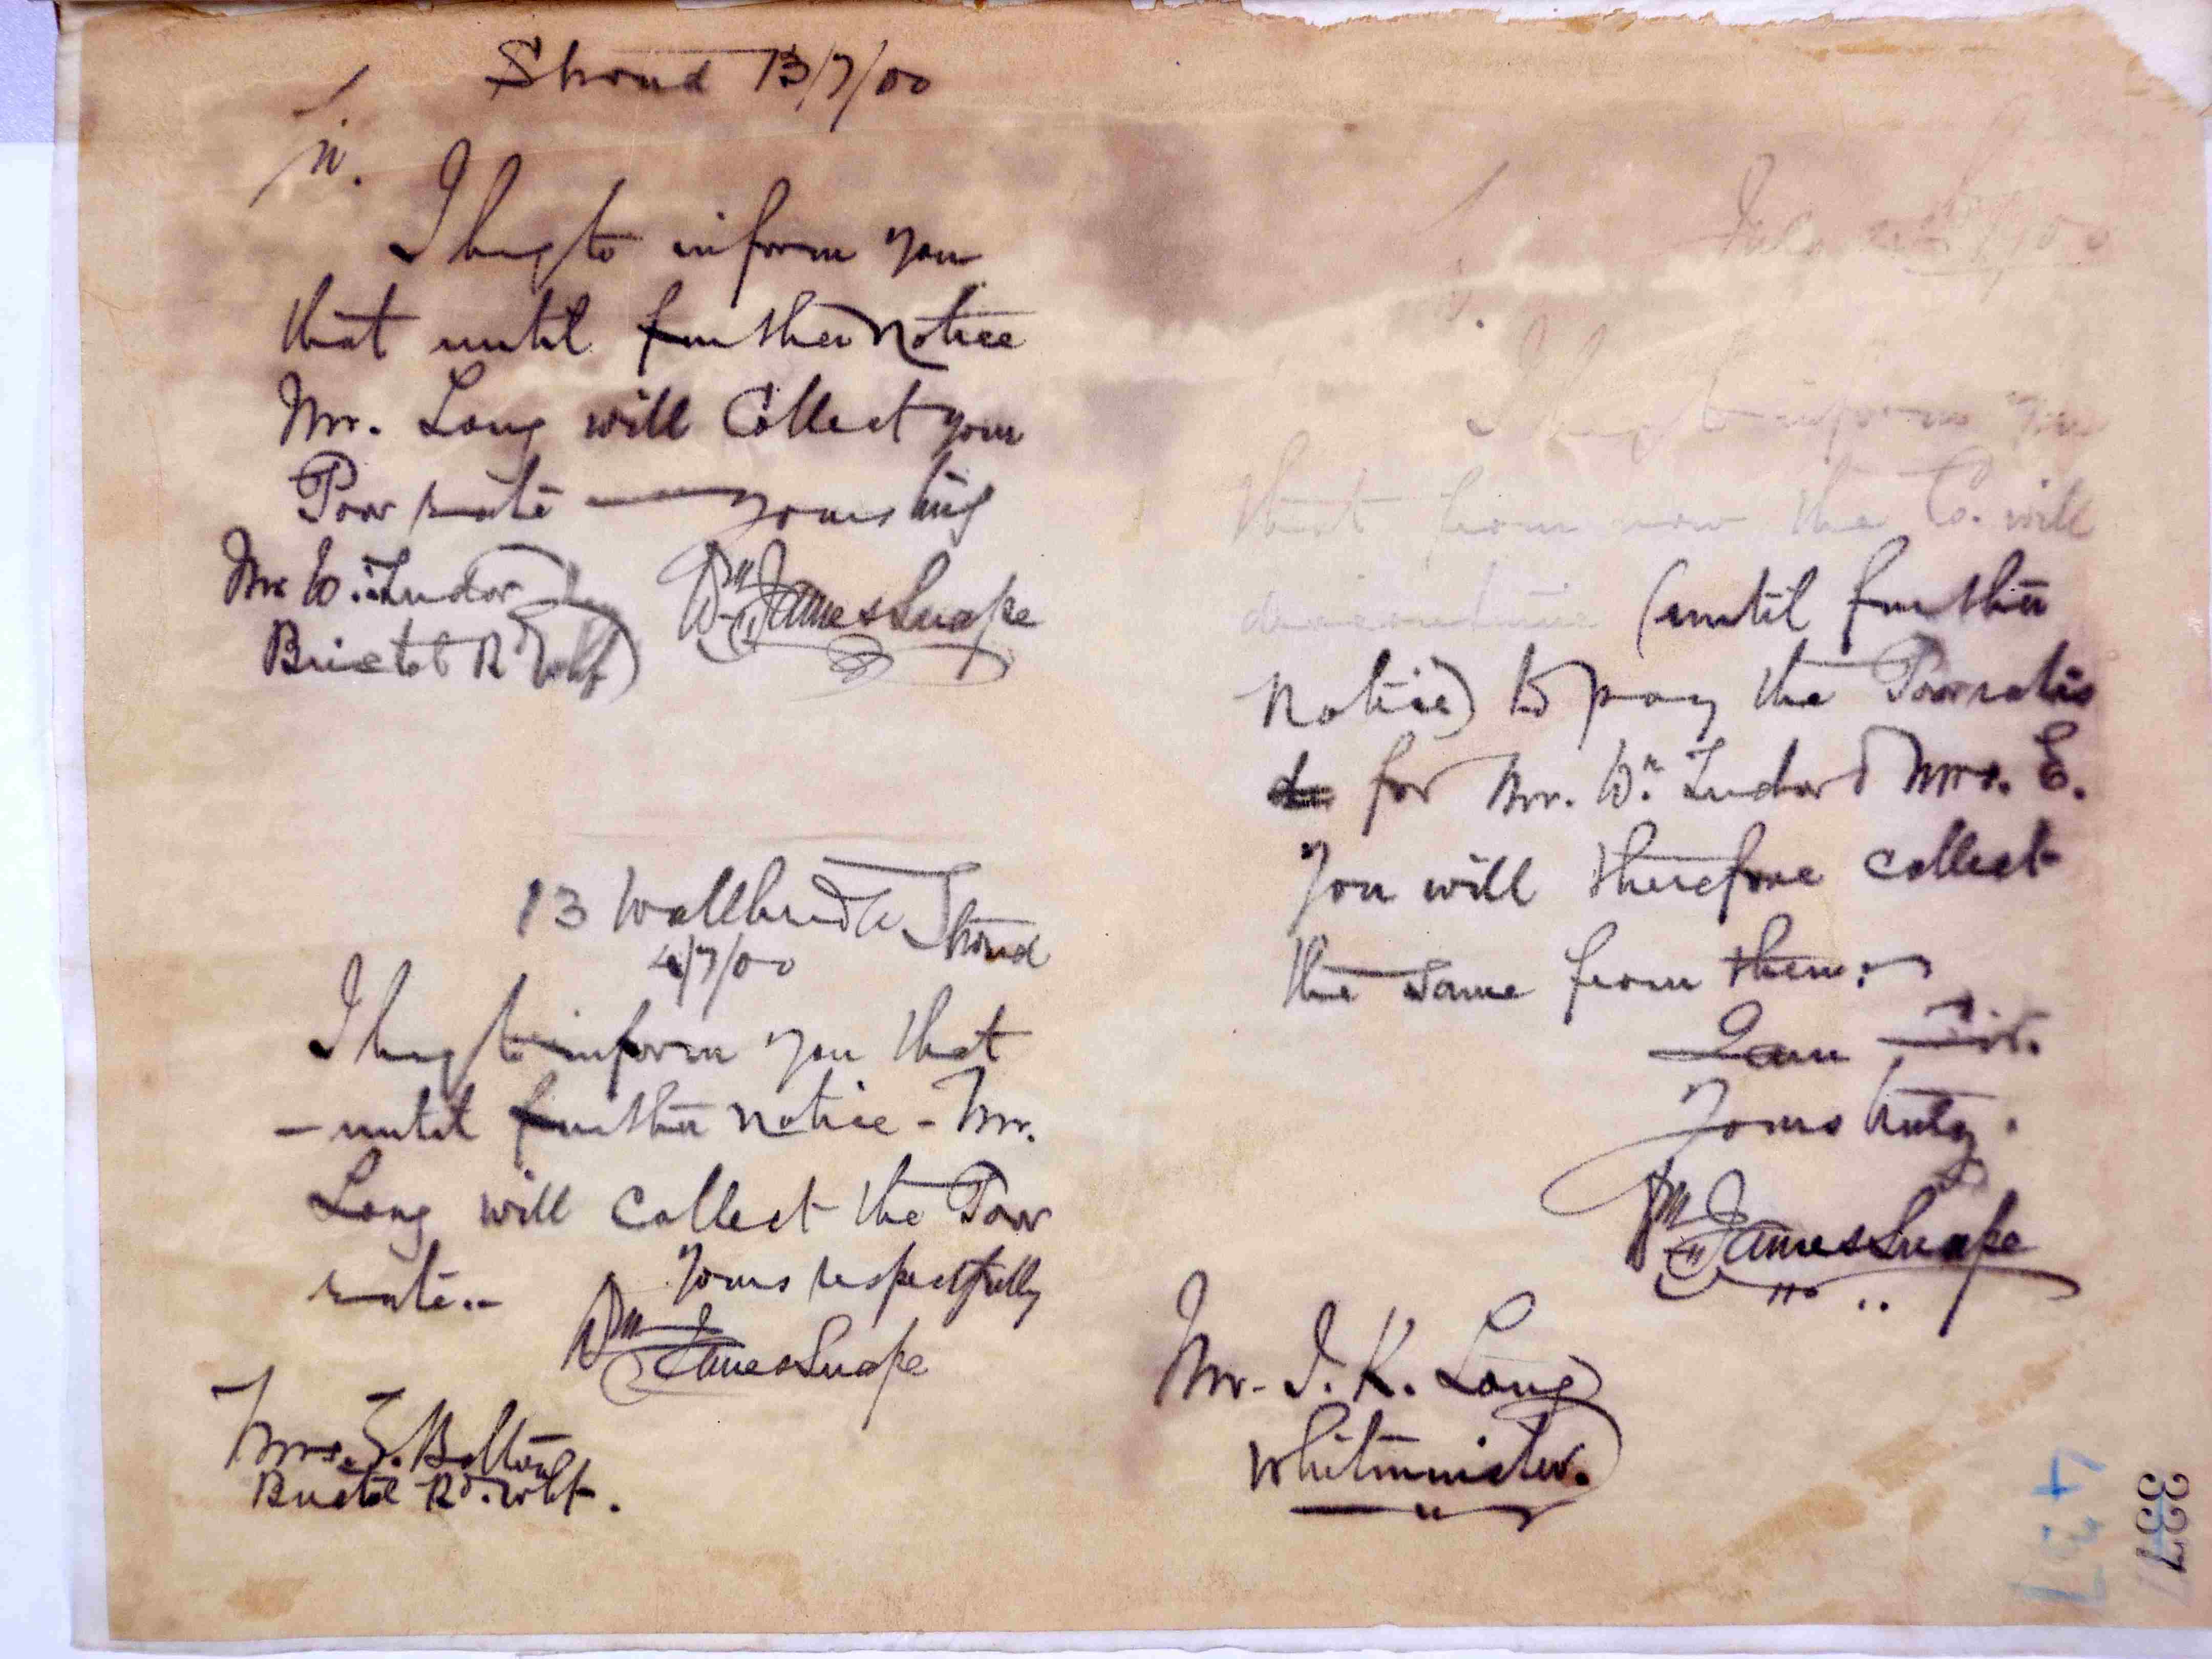 Stroud 13/7/00
Sir.
I beg to inform you
that until further notice
Mr. Long will Collect your
Poor rate — Yours truly
Wm James Snape
Mr W. Tudor
Bristol Rd
13 Wallbridge Stroud
4/7/00
I beg to inform you that
- until further notice - Mr.
Long will Collect the Poor
rate.-
Yours respectfully
Wm James Snape
Mrs. E. Bolton
Bristol Rd.
1900
I beg to inform you
that from now the Co. will
discontinue (until further
Notice) to pay the Poor rates
for Mr. Wm Tudor & Mrs. E.
You will therefore collect
the same from them.
I am Sir.
Yours truly.
Wm James Snape
Mr. J. K. Long
Whitminster.
337